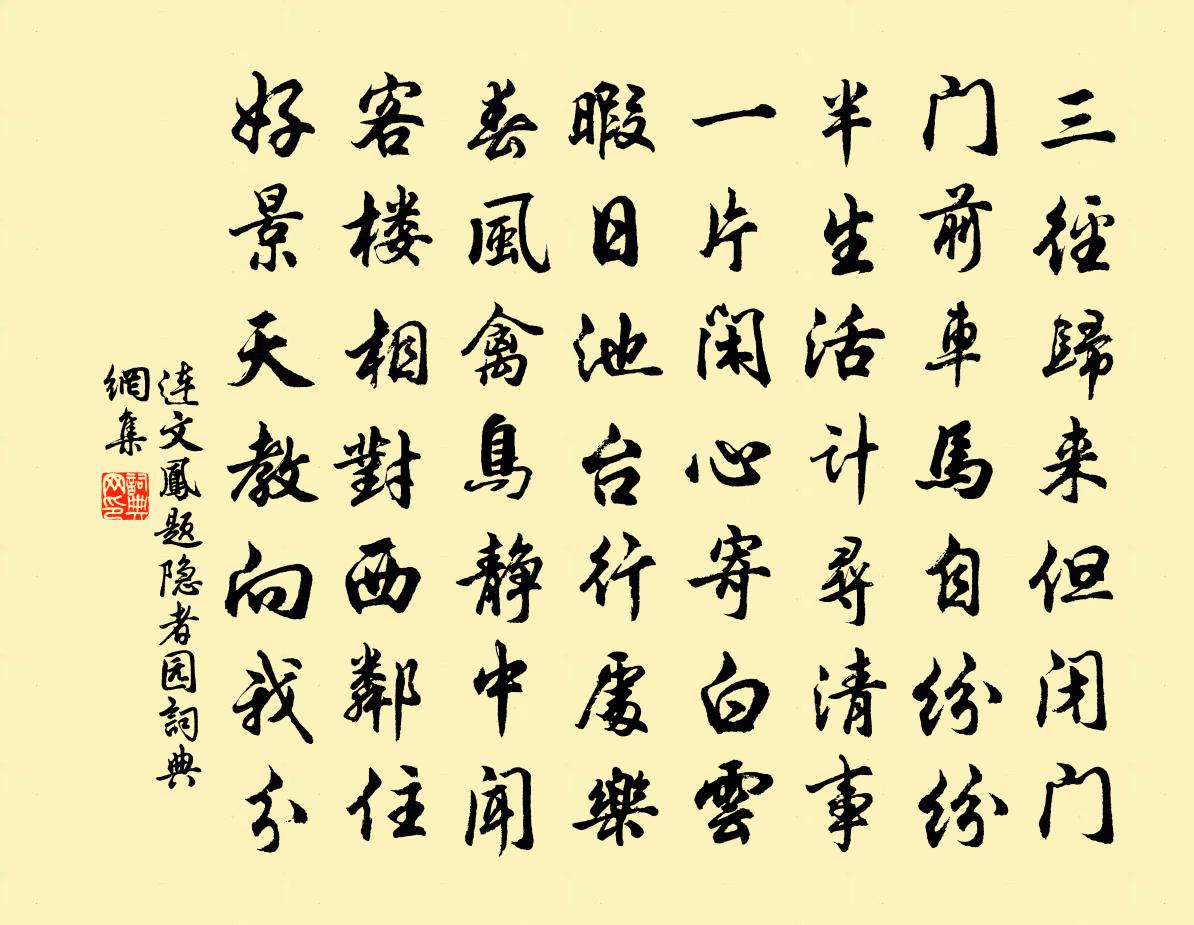 三径歸来但闭门
门前車馬自纷纷
半生活计尋清事
一片闲心寄白雲
暇日池台行處樂
春風禽鳥静中闻
客楼相對西鄰住
好景天教向我分
连文鳳题隐者园詞典
網集
詞典
网印